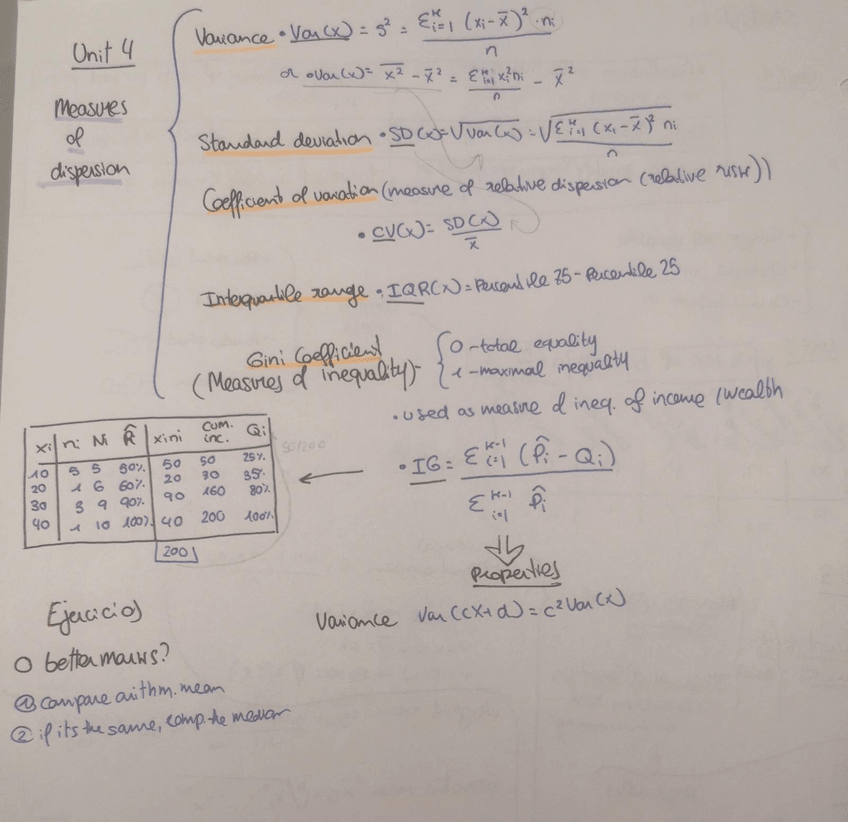 Unit 4
Measures
of
dispersion
Variance • Var(x) = s² = Σᵢ₌₁ᴷ (xᵢ - x̄)² · nᵢ / n
or • Var(x) = x̄² - x̄² = Σᵢ₌₁ᴷ xᵢ² nᵢ / n - x̄²
Standard deviation • SD(x) = √Var(x) = √Σᵢ₌₁ᴷ (xᵢ - x̄)² nᵢ / n
Coefficient of variation (measure of relative dispersion (relative risk))
• CV(x) = SD(x) / x̄
Interquartile range • IQR(x) = Percentile 75 - Percentile 25
Gini Coefficient
(Measures of inequality) -
0 - total equality
1 - maximal inequality
• used as measure of ineq. of income / wealth
• IG = Σᵢ₌₁ᴷ⁻¹ (P̂ᵢ - Qᵢ) / Σᵢ₌₁ᴷ⁻¹ P̂ᵢ
xi ni Ni P̂i xini cum. inc. Qi
10 5 5 50% 50 50 25%
20 1 6 60% 20 30 35%
30 3 9 90% 90 160 80%
40 1 10 100% 40 200 100%
200
Properties
Variance Var(cX+d) = c² Var(x)
Ejercicios
O better marks?
① compare arithm. mean
② if its the same, comp. the median